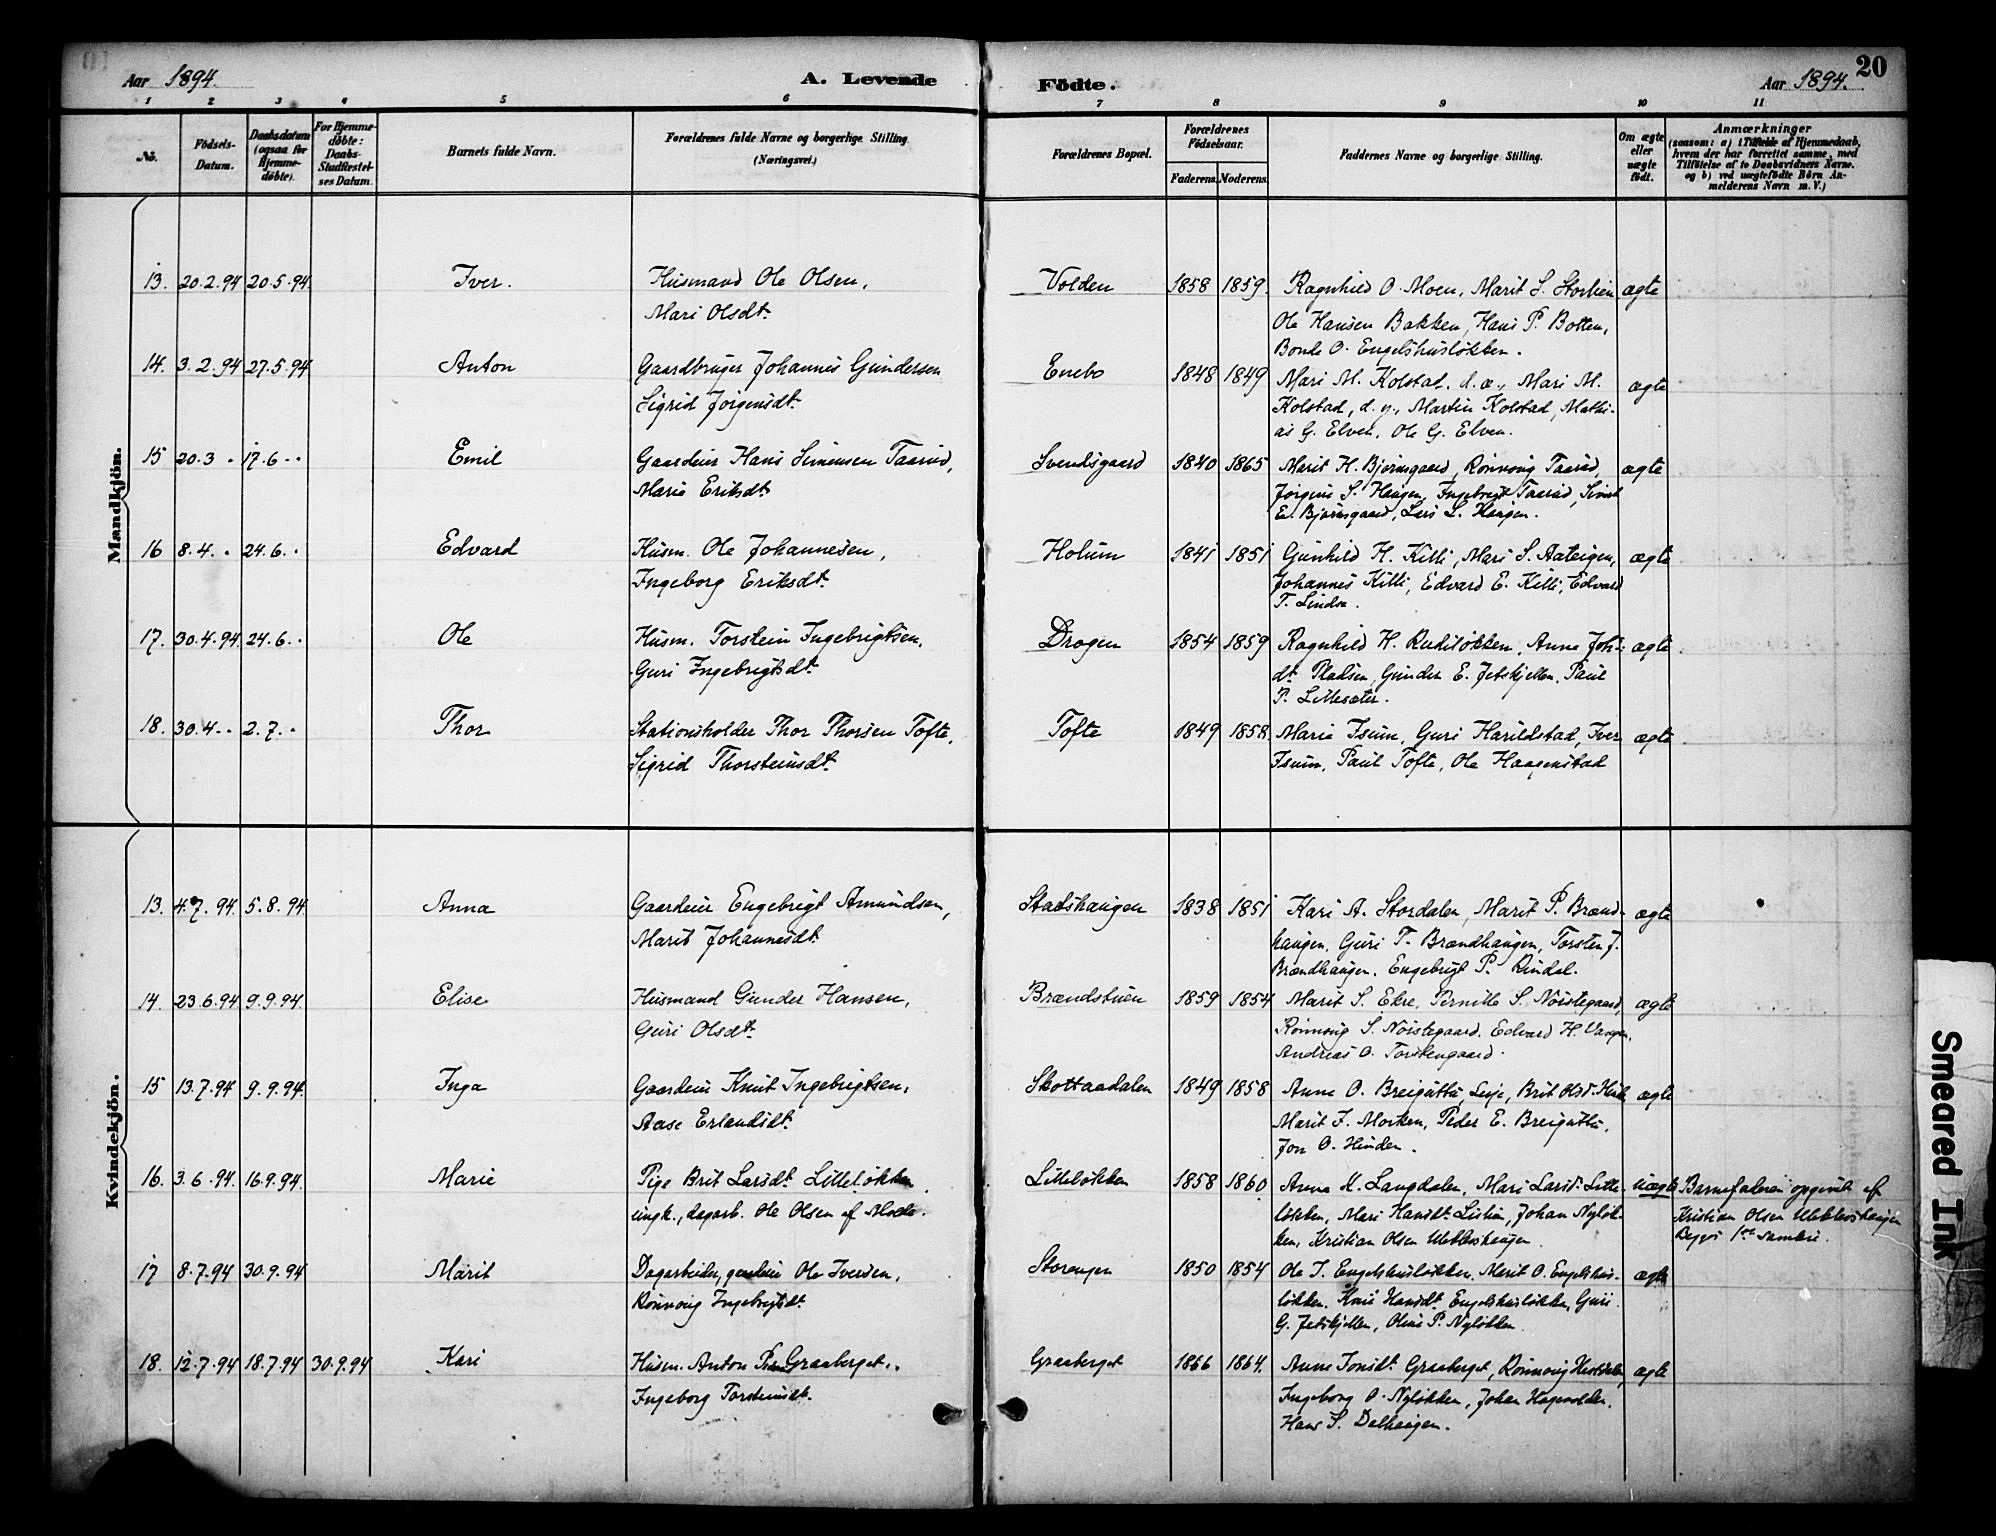 Aar 1894. A. Levende Födte. Aar 1894. 20
1 2 3 4 5 6 7 8 9 10 11
No. Födsels-Datum. Daabsdatum (ogsaa for Hjemmedöbte). For Hjemmedöbte: Daabs-Stadfæstelses Datum. Barnets fulde Navn. Forældrenes fulde Navne og borgerlige Stilling. (Næringsvei.) Forældrenes Bopæl. Forældrenes Födselsaar. Faderens. Moderens. Faddernes Navne og borgerlige Stilling. Om ægte eller uægte födt. Anmærkninger (saasom: a) i Tilfælde af Hjemmedaab, hvem der har forrettet samme, med Tilföielse af to Daabsvidners Navne, og b) ved uægtefödte Börn Anmelderens Navn m. V.)
Mandkjön.
13. 20.2.94 20.5.94. Iver. Husmand Ole Olsen, Volden 1858 1859. Ragnhild O. Moen, Marit S. Storlien ægte
Mari Olsdt. Ole Hansen Bakken, Hans P. Botten,
O. Engelshusløkken.
14. 3.2.94 27.5.94 Anton Gaardbruger Johannes Gundersen Enebo 1848 1849 Mari M. Kolstad, d. æ., Mari M. ægte
Sigrid Jørgensdt. Kolstad, d. y., Martin Kolstad, Mathi-
as G. Elven, Ole G. Elven.
15 20.3 . 17.6 .. Emil Gaardeier Hans Simensen Taarud, Svendsgaard 1840 1865 Marit H. Bjørnsgaard, Rønnoug Taarud, ægte
Marie Eriksdt. Jørgine S. Haugen, Ingebrigt Taarud, Simen
E. Bjørnsgaard, Lars L. Haugen.
16 8.4. . 24.6. . Edvard Husm. Ole Johannesen, Holum 1841 1851 Gunhild H. Killi, Mari S. Aateigen, ægte
Ingeborg Eriksdt. Johannes Killi, Edvard E. Killi, Edvard
T. Lindsø.
17. 30.4.94 24.6. . Ole Husm. Torstein Ingebrigtsen, Drogen 1854 1859 Ragnhild H. Rudiløkken, Anne Joh- ægte
Guri Ingebrigtsdt. dt. Pladsen, Gunder E. Jetskjellen, Paul
P. Lillesæter.
18. 30.4 .. 2.7. . Thor Stationsholder Thor Thorsen Tofte, Tofte 1849 1858. Marie Isum, Guri Harildstad, Iver ægte
Sigrid Thorsteinsdt. Isum, Paul Tofte, Ole Haagenstad
Kvindekjön.
13. 4.7.94. 5.8.94 Anna Gaardeier Engebrigt Amundsen, Stadshaugen 1838 1851 Kari A. Stordalen, Marit P. Brænd- ægte
Marit Johannesdt. haugen, Guri T. Brændhaugen, Torsten J.
Brændhaugen, Engebrigt P. Rindal.
14. 23.6.94 9.9.94 Elise Husmand Gunder Hansen, Brændstuen 1859 1854 Marit S. Ekre, Pernille S. Nøistegaard, ægte
Guri Olsdt. Rønnoug S. Nøistegaard, Edvard H. Vangen,
Andreas O. Torstengaard.
15 13.7.94 9.9.94. Inga Gaardeier Knut Ingebrigtsen, Skottaadalen 1849 1858 Anne O. Breigutto, Lesje, Brit Olsd. ægte
Aase Erlandsdt. Marit J. Morken, Peder E. Breigutto,
Jon O. Hinden.
16. 3.6.94. 16.9.94. Marie Pige Brit Larsdt. Lilleløkken Lilleløkken 1858 1860 Anna H. Langdalen, Mari Larsd. Lille- uægte Barnefaderen opgivet af
ungk., dagarb. Ole Olsen af løkken, Mari Hansdt. Listien, Johan Nyløk- Kristian Olsen Ulekleivshaugen
ken, Kristian Olsen Ulekleivshaugen
17 8.7.94 30.9.94 Marit Dagarbeider, gaardeier Ole Iversen, Storengen 1850 1854 Ole I. Engelshusløkken, Marit O. Engelshus- ægte
Rønnoug Ingebrigtsdt. løkken, Kari Hansdt. Engelshusløkken, Guri
G. Jetskjellen, Oline P. Nyløkken
18. 12.7.94 18.7.94 30.9.94 Kari Husm. Anton Graaberget, Graaberget 1866 1864. Anne Jonsdt. Graaberget, Rønnoug ægte
Ingeborg Torsteinsdt. Ingeborg O. Nyløkken, Johan Hagevolden,
Hans S. Dalhaugen.
Smeared Ink